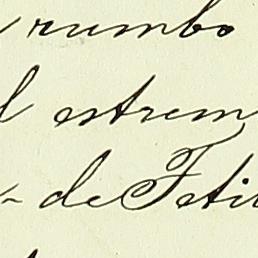 rumbo
l estrem
- de Feti